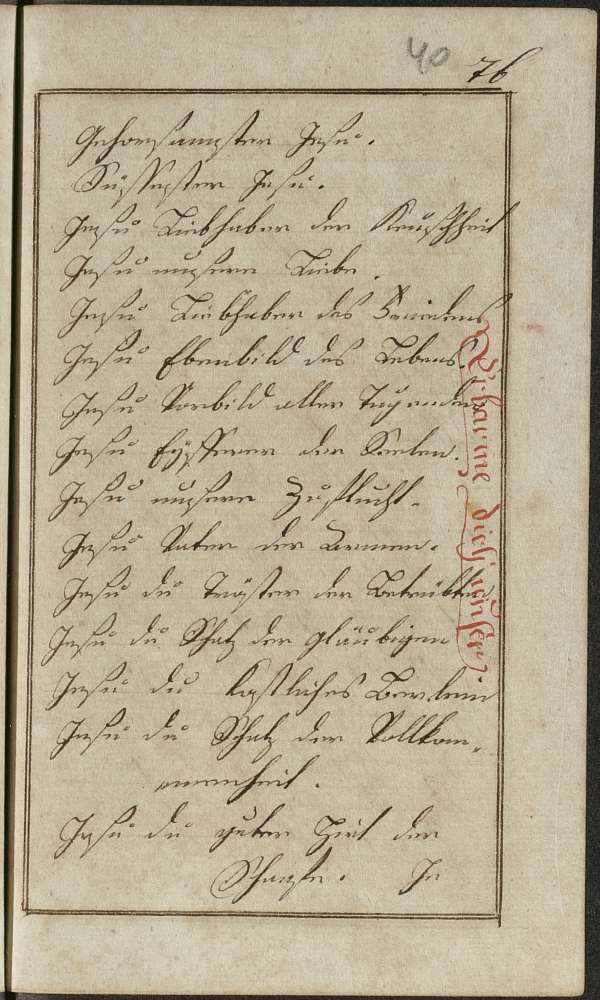 40 76
Gehorsamster Jesu.
Süssester Jesu.
Jesu Liebhaber der Keuschheit
Jesu unsere Liebe.
Jesu Liebhaber des Friedens
Jesu Ebenbild des Lebens.
Jesu Vorbild aller Tugenden
Jesu Eyfferer der Seelen.
Jesu unsere Zuflucht.
Jesu Vater der Armen.
Jesu du Tröster der Betrübten
Jesu du Schatz der gläubigen
Jesu du kostliches Berlein
Jesu du Schatz der Vollkom„
menheit.
Jesu du guter Hirt der
Schaafe. Je
Erbarme dich unser